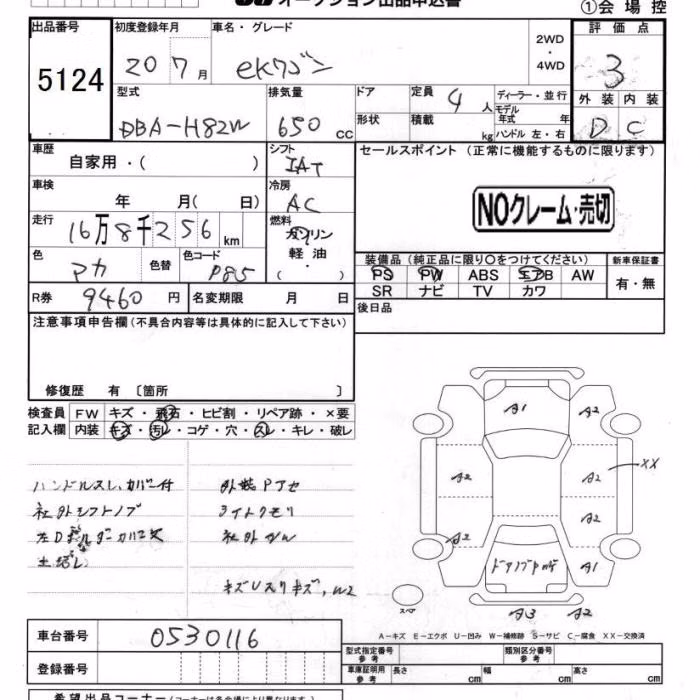 オークション出品申込書
①会場控
出品番号
5124
初度登録年月
20 7月
車名・グレード
ekワゴン
2WD
・
4WD
評価点
3
型式
DBA-H82W
排気量
650 cc
ドア
形状
定員
4人
積載
kg
ディーラー・並行
モデル
年式 年
ハンドル 左・右
外装 内装
D C
車歴
自家用・( )
シフト
IAT
セールスポイント (正常に機能するものに限ります)
NOクレーム・売切
車検
年 月( 日)
冷房
AC
走行
16万8千256km
燃料
ガソリン
軽油
・
( )
色
アカ
色替
色コード
P85
装備品 (純正品に限り〇をつけてください)
PS PW ABS エアB AW
SR ナビ TV カワ
新車保証書
有・無
R券
9460円
名変期限 月 日
後日品
注意事項申告欄(不具合内容等は具体的に記入して下さい)
修復歴 有 〔箇所 〕
検査員
記入欄
FW キズ・飛石・ヒビ割・リペア跡・×要
内装 キズ・汚レ・コゲ・穴・スレ・キレ・破レ
ハンドルスレ、カバー付
社外シフトノブ
外装Pアセ
ライトクモリ
キズUスリキズ,W2
A1
A2
A2
A2
XX
A2
A2
A1
A3
A2
スペア
A-キズ E-エクボ U-凹み W-補修跡 S-サビ C-腐食 XX-交換済
車台番号
0530116
登録番号
型式指定番号
参考
類別区分番号
参考
車庫証明用
参考
長さ cm
幅 cm
高さ cm
希望出品コーナー(コーナーは各会場により異なります)